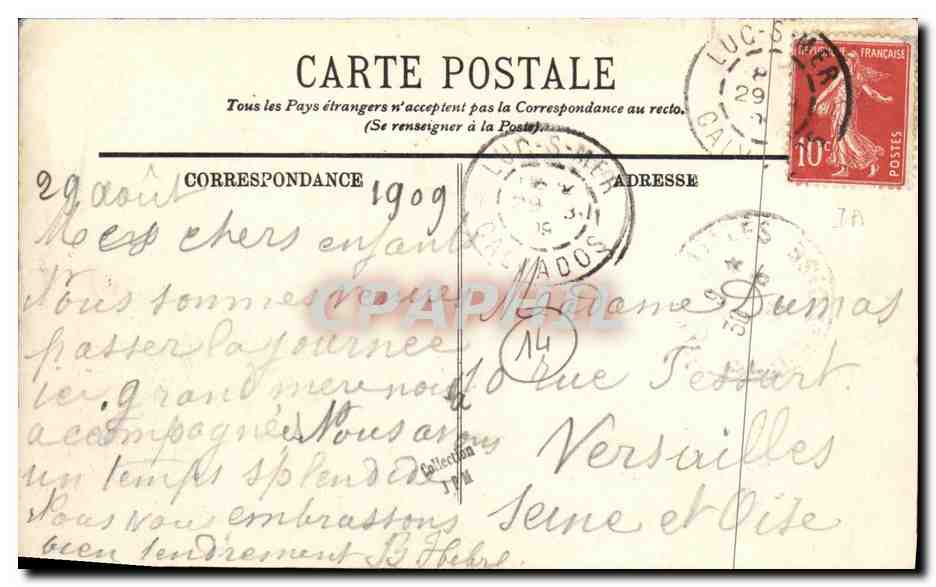 CARTE POSTALE
Tous les Pays étrangers n'acceptent pas la Correspondance au recto.
(Se renseigner à la Poste).
LUC-S-MER
29
RÉPUBLIQUE FRANÇAISE
10c
POSTES
CORRESPONDANCE
ADRESSE
LUC-S-MER
CALVADOS
29 août 1909
Mes chers enfants
Nous sommes venus
passer la journée
ici, grand mere nous a
accompagnés Nous avons
un temps splendide
Nous vous embrassons
bien tendrement B
Madame Dumas
10 rue Tessart
Versailles
Seine et Oise
14
Collection
JPM
CPAPHIL